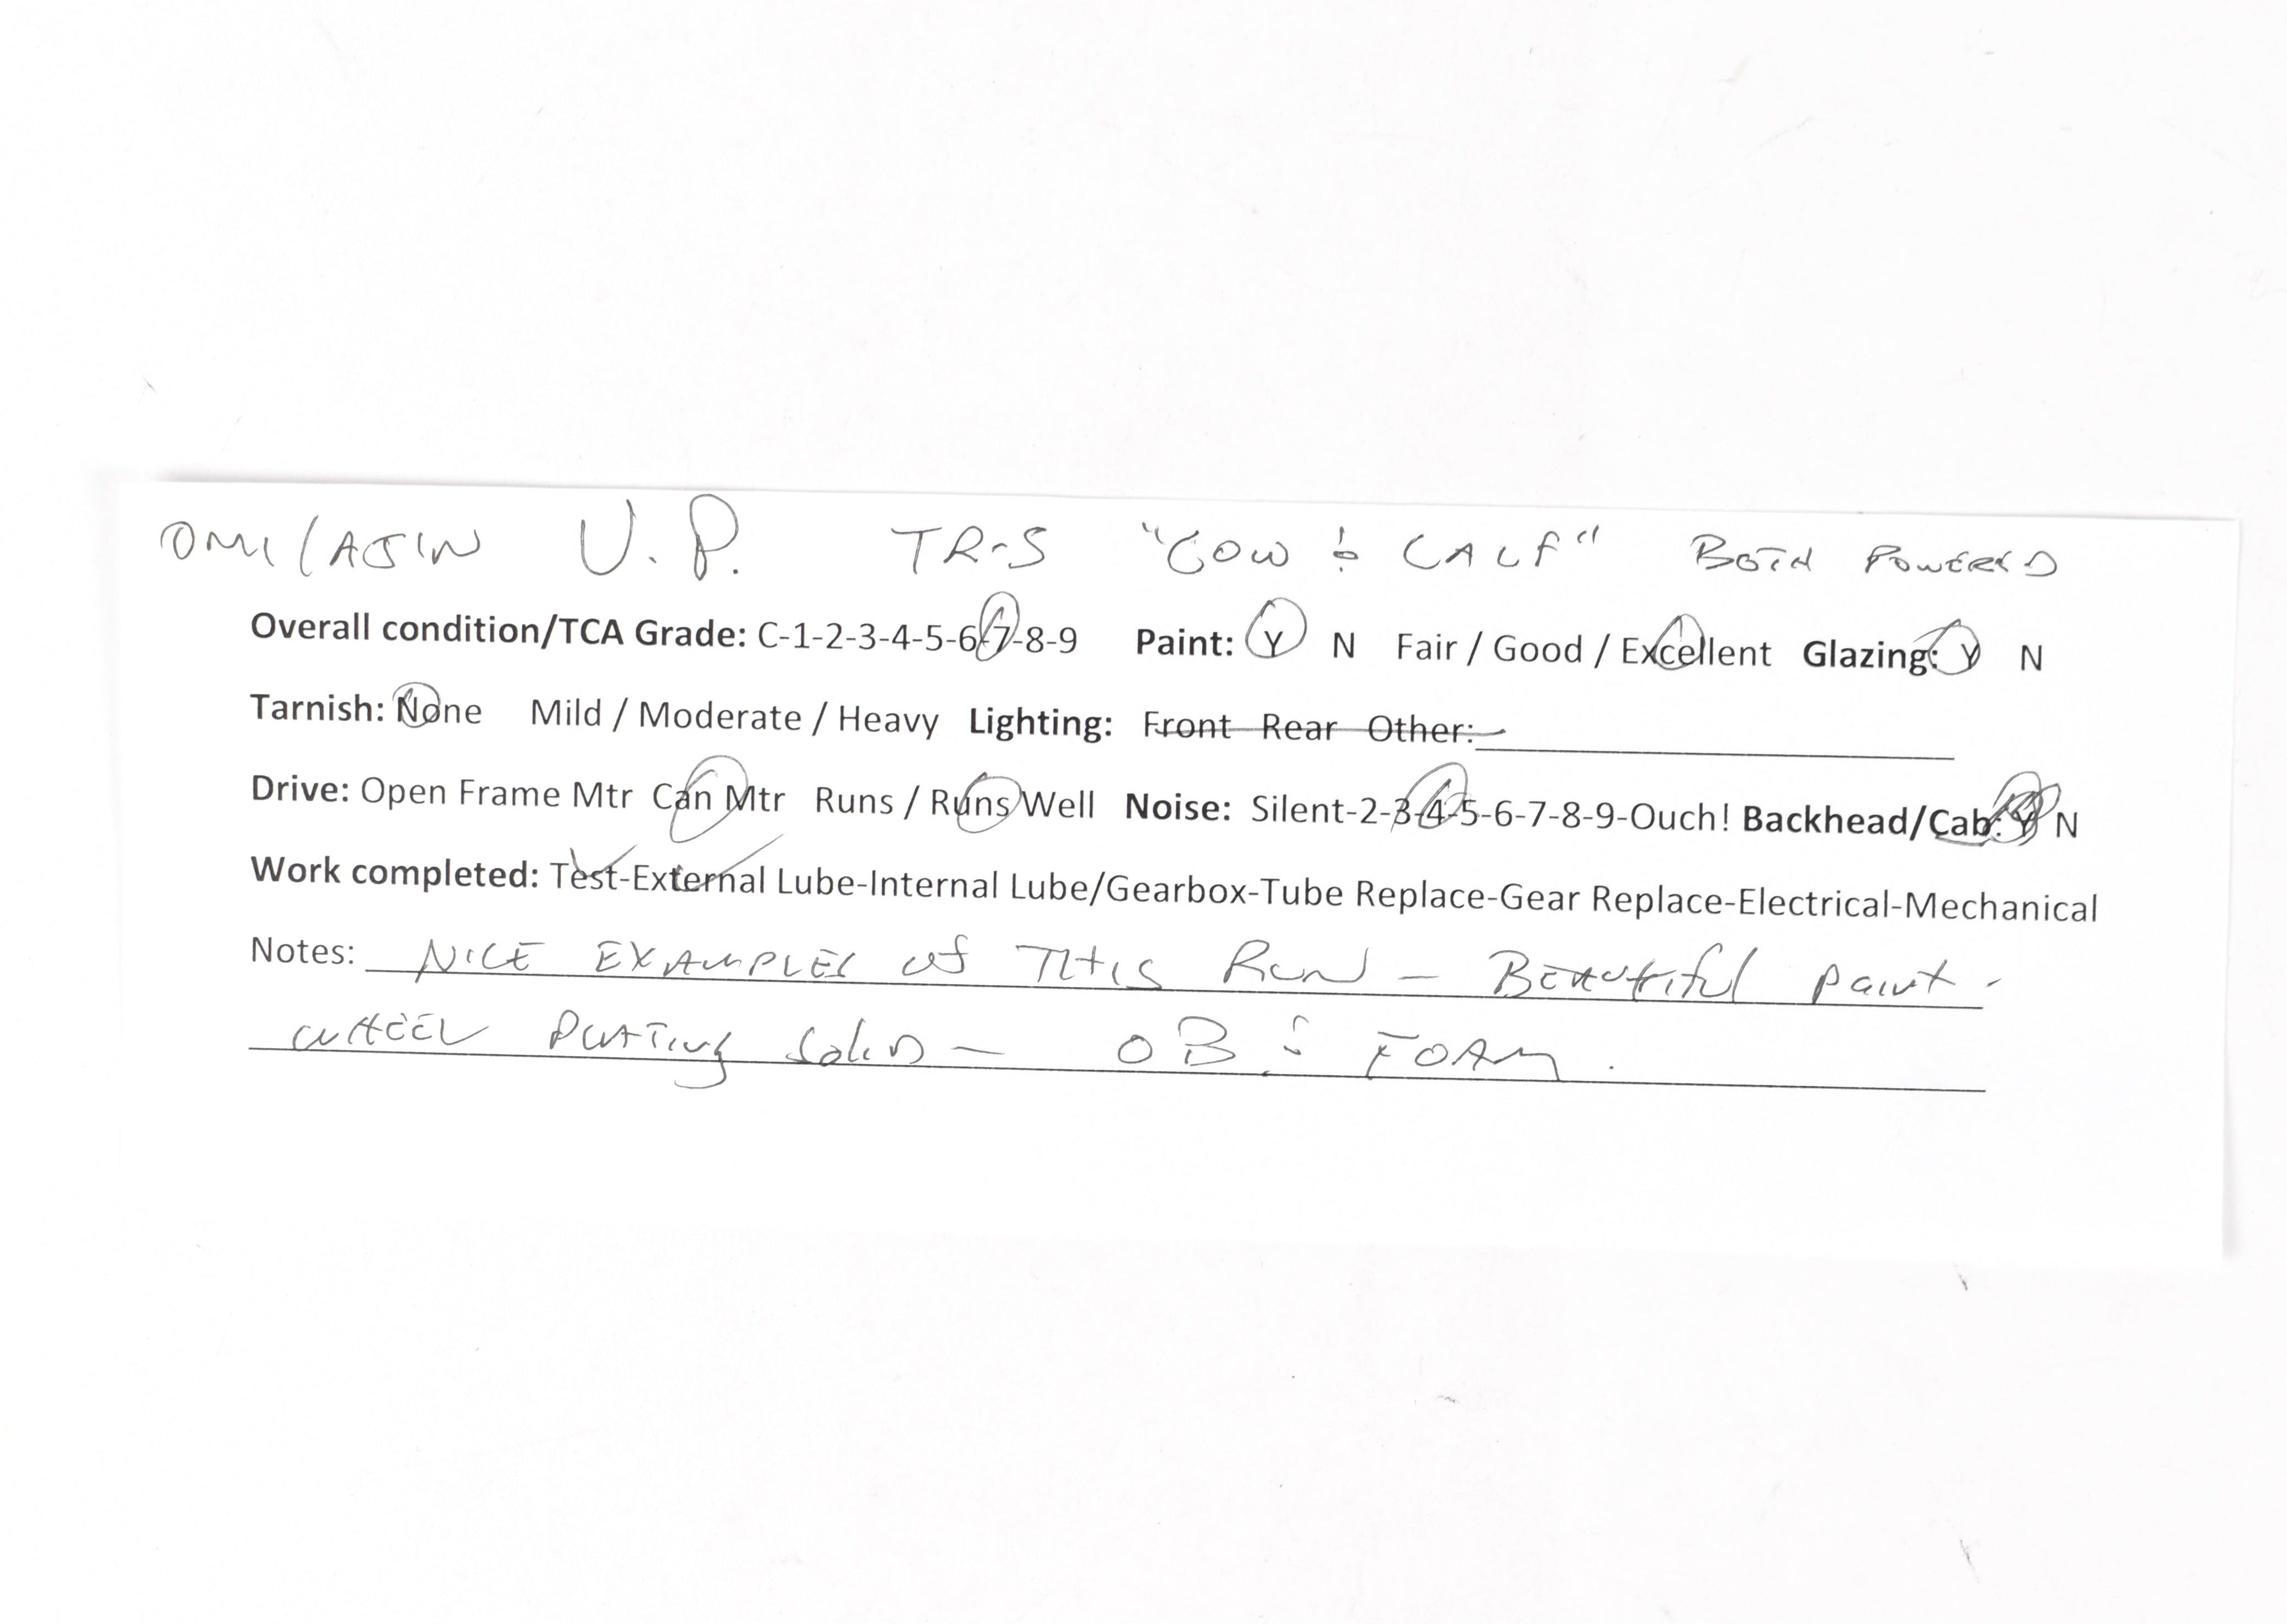 OMI/AJIN U.P. TR-5 "COW & CALF" BOTH POWERED
Overall condition/TCA Grade: C-1-2-3-4-5-6-7-8-9 Paint: Y N Fair / Good / Excellent Glazing: Y N
Tarnish: None Mild / Moderate / Heavy Lighting: Front Rear Other:
Drive: Open Frame Mtr Can Mtr Runs / Runs Well Noise: Silent-2-3-4-5-6-7-8-9-Ouch! Backhead/Cab: Y N
Work completed: Test-External Lube-Internal Lube/Gearbox-Tube Replace-Gear Replace-Electrical-Mechanical
Notes: NICE EXAMPLES of THIS RUN - BEAUTIFUL paint -
WHEEL PLATING SOLID - OB & FOAM.